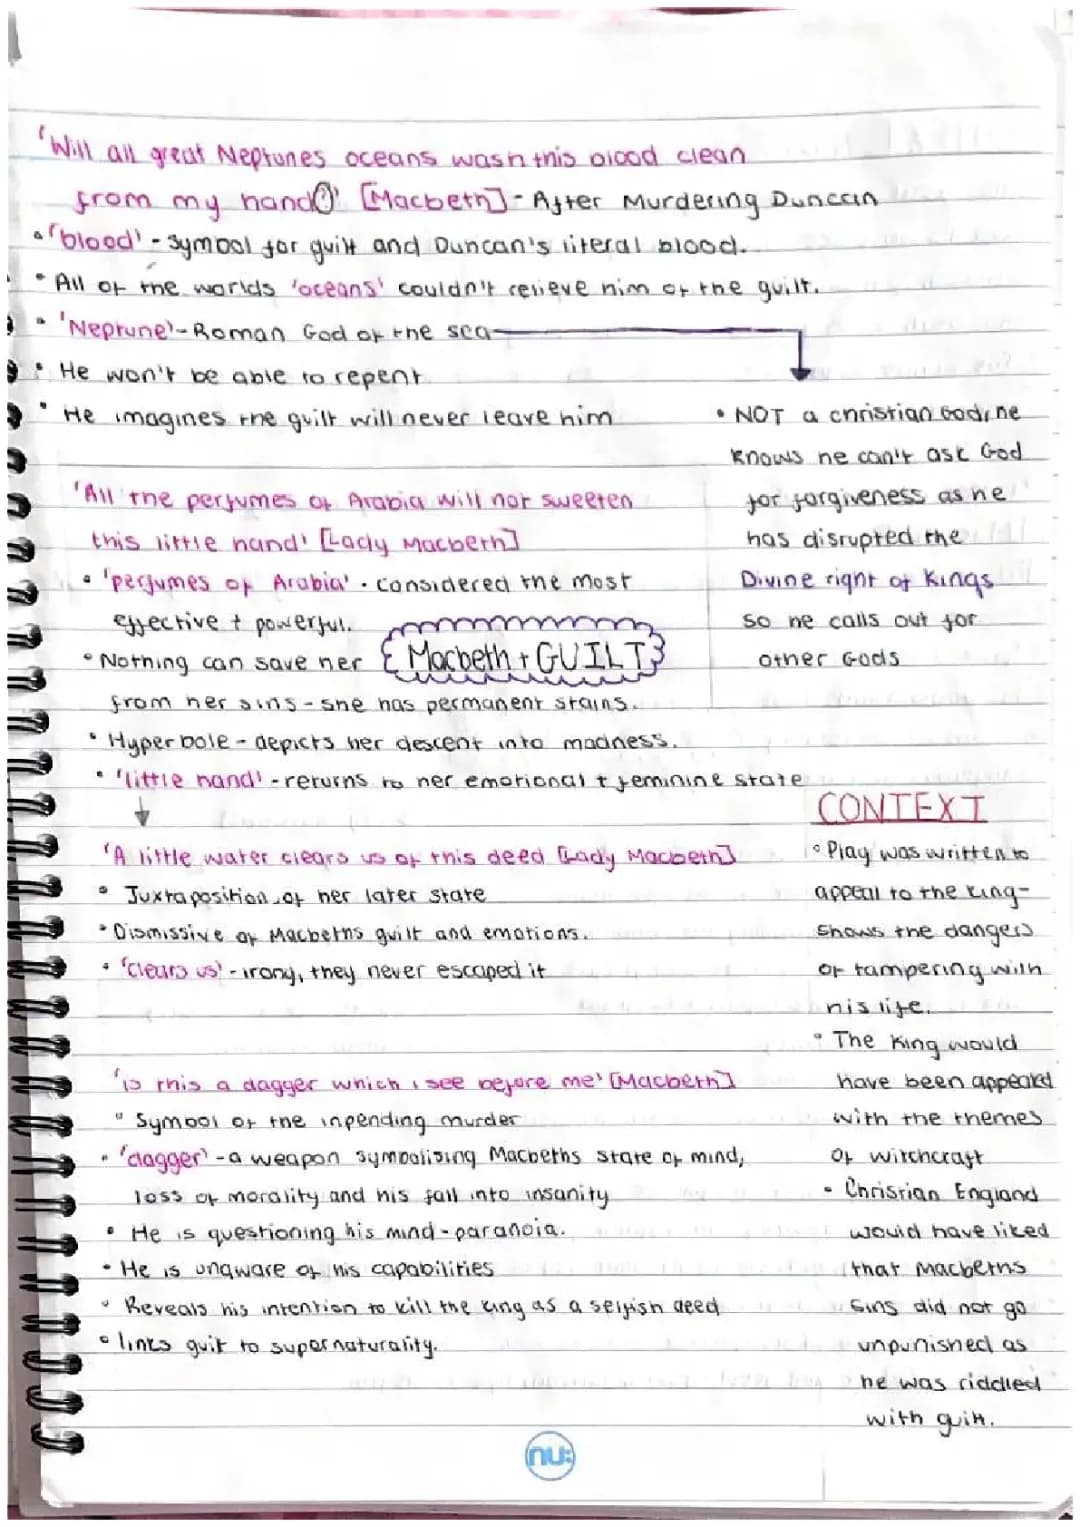 'Will all great Neptunes oceans wash this blood clean
from my hand?' [Macbeth] - After Murdering Duncan
• 'blood' - symbol for guilt and Duncan's literal blood.
• All of the worlds 'oceans' couldn't relieve him of the guilt.
• 'Neptune' - Roman God of the sea
• He won't be able to repent
• He imagines the guilt will never leave him
• NOT a christian God, he
knows he can't ask God
for forgiveness as he
has disrupted the
Divine right of Kings
so he calls out for
other Gods
'All the perfumes of Arabia will not sweeten
this little hand' [Lady Macbeth]
• 'perfumes of Arabia' • considered the most
effective + powerful.
Macbeth + GUILT
• Nothing can save her
from her sins - she has permanent stains.
• Hyperbole - depicts her descent into madness.
• 'little hand' - returns to her emotional + feminine state
'A little water clears us of this deed [Lady Macbeth]
• Juxtaposition of her later state
• Dismissive of Macbeths guilt and emotions.
• 'clears us' - irony, they never escaped it
'is this a dagger which i see before me' [Macbeth]
• Symbol of the inpending murder
• 'dagger' - a weapon symbolising Macbeths state of mind,
loss of morality and his fall into insanity
• He is questioning his mind - paranoia.
• He is unaware of his capabilities
• Reveals his intention to kill the king as a selfish deed
• links guilt to supernaturality.
CONTEXT
• Play was written to
appeal to the king -
shows the dangers
of tampering with
his life.
• The King would
have been appealed
with the themes
of witchcraft
• Christian England
would have liked
that Macbeths
sins did not go
unpunished as
he was riddled
with guilt.
nu: